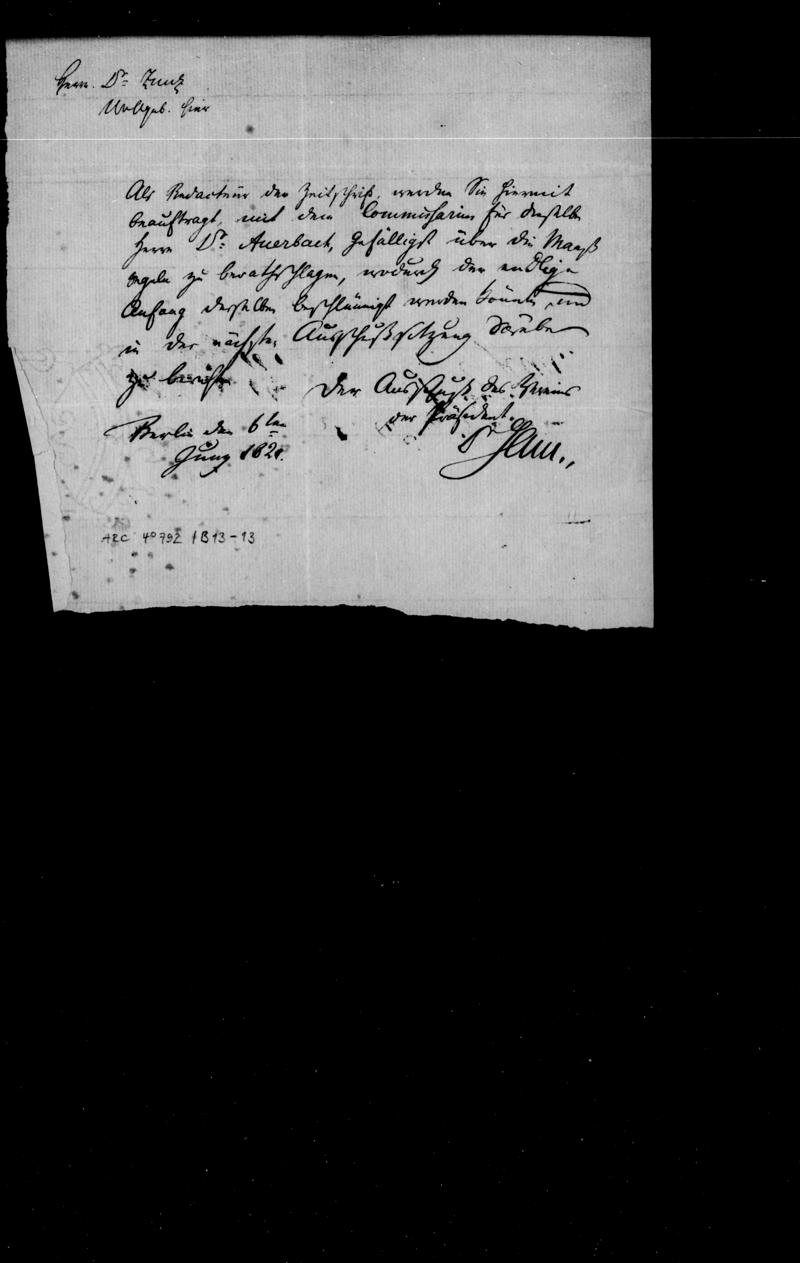 Herrn Dr. Zunz
Wohlgeb. hier
Als Redacteur der Zeitschrift, werden Sie hiermit
beauftragt, mit dem Commissarius für dieselbe
Herrn Dr. Auerbach, gefälligst über die Maaß
regeln zu berathschlagen, wodurch der endliche
Anfang derselben beschleunigt werden könnte, und
in der nächsten Ausschußsitzung darüber
zu berichten.
Der Ausschuß des Vereins
der Präsident.
Berlin den 6ten
Juny 1821.
ARC 4° 792 / B13-13